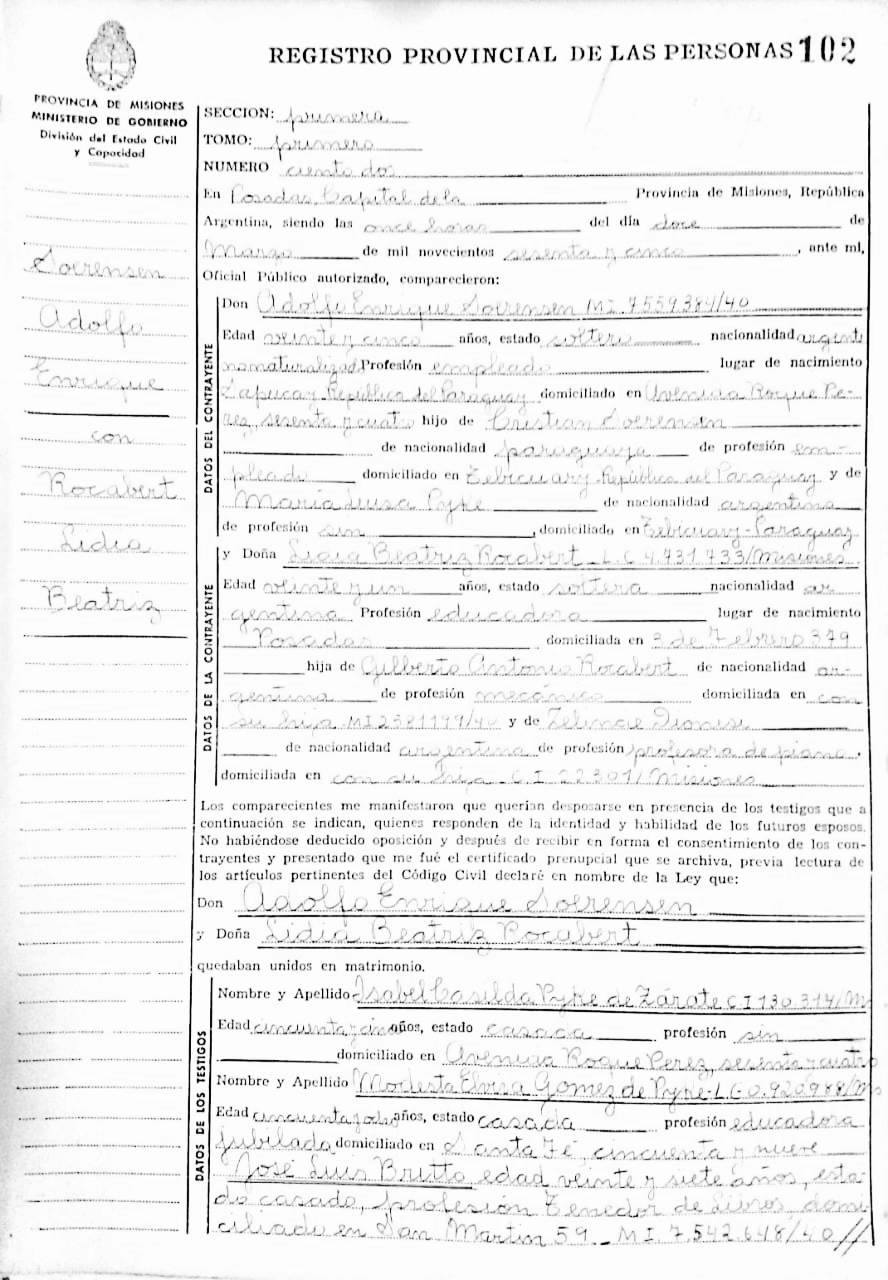 REGISTRO PROVINCIAL DE LAS PERSONAS 102
PROVINCIA DE MISIONES
MINISTERIO DE GOBIERNO
División del Estado Civil
y Capacidad
Soerensen
Adolfo
Enrique
con
Rocabert
Lidia
Beatriz
SECCION: primera
TOMO: primero
NUMERO ciento dos
En Posadas, Capital de la Provincia de Misiones, República
Argentina, siendo las once horas del día doce de
Marzo de mil novecientos sesenta y cinco, ante mí,
Oficial Público autorizado, comparecieron:
DATOS DEL CONTRAYENTE
Don Adolfo Enrique Soerensen MI 7559384/40
Edad veinte y cinco años, estado soltero nacionalidad argenti
no naturalizado Profesión empleado lugar de nacimiento
República del Paraguay domiciliado en Avenida Roque Pe-
rez, sesenta y cuatro hijo de Cristian Soerensen
de nacionalidad paraguaya de profesión em-
pleado domiciliado en República del Paraguay y de
María Luisa Pyke de nacionalidad argentina
de profesión sin, domiciliado en Paraguay
DATOS DE LA CONTRAYENTE
y Doña Lidia Beatriz Rocabert L.C 4.731.733/Misiones
Edad veinte y un años, estado soltera nacionalidad ar
gentina Profesión educadora lugar de nacimiento
Posadas domiciliada en 3 de Febrero 379
hija de Gilberto Antonio Rocabert de nacionalidad ar-
gentina de profesión mecánico domiciliada en con
su hija MI 2581199/40 y de
de nacionalidad argentina de profesión profesora de piano,
domiciliada en con su hija C.I 22301/Misiones
Los comparecientes me manifestaron que querían desposarse en presencia de los testigos que a
continuación se indican, quienes responden de la identidad y habilidad de los futuros esposos.
No habiéndose deducido oposición y después de recibir en forma el consentimiento de los con-
trayentes y presentado que me fué el certificado prenupcial que se archiva, previa lectura de
los artículos pertinentes del Código Civil declaré en nombre de la Ley que:
Don Adolfo Enrique Soerensen
y Doña Lidia Beatriz Rocabert
quedaban unidos en matrimonio.
DATOS DE LOS TESTIGOS
Nombre y Apellido Isabel Casilda Pyke de Zárate CI 130.314/M
Edad cincuenta y años, estado casada profesión sin
domiciliado en Avenida Roque Perez, sesenta y cuatro
Nombre y Apellido Modesta Elvira Gomez de Pyke L.C 0.920988/Ms
Edad cincuenta y ocho años, estado casada profesión educadora
jubilada domiciliado en Santa Fé, cincuenta y nueve
José Luis Britto, edad veinte y siete años, esta
do casado, profesión Tenedor de Libros, domi
ciliado en San Martin 59 - MI. 7.542.648/40 //